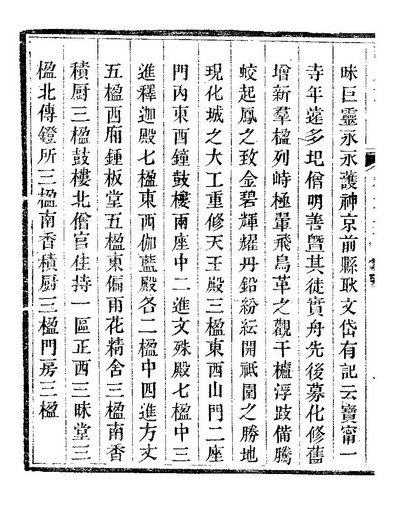 昧巨靈永永護神京前縣耿文岱有記云寶甯一
寺年遠多圯僧明善暨其徒實舟先後募化修舊
增新羣楹列峙極翬飛鳥革之觀千櫨浮跂備騰
蛟起鳳之致金碧輝耀丹鉛紛紜開祇園之勝地
現化城之大工重修天王殿三楹東西山門二座
門內東西鐘鼓樓兩座中二進文殊殿七楹中三
進釋迦殿七楹東西伽藍殿各二楹中四進方丈
五楹西廂鍾板堂五楹東偏雨花精舍三楹南香
積厨三楹鼓樓北僧官住持一區正西三昧堂三
楹北傳鐙所三楹南香積厨三楹門房三楹